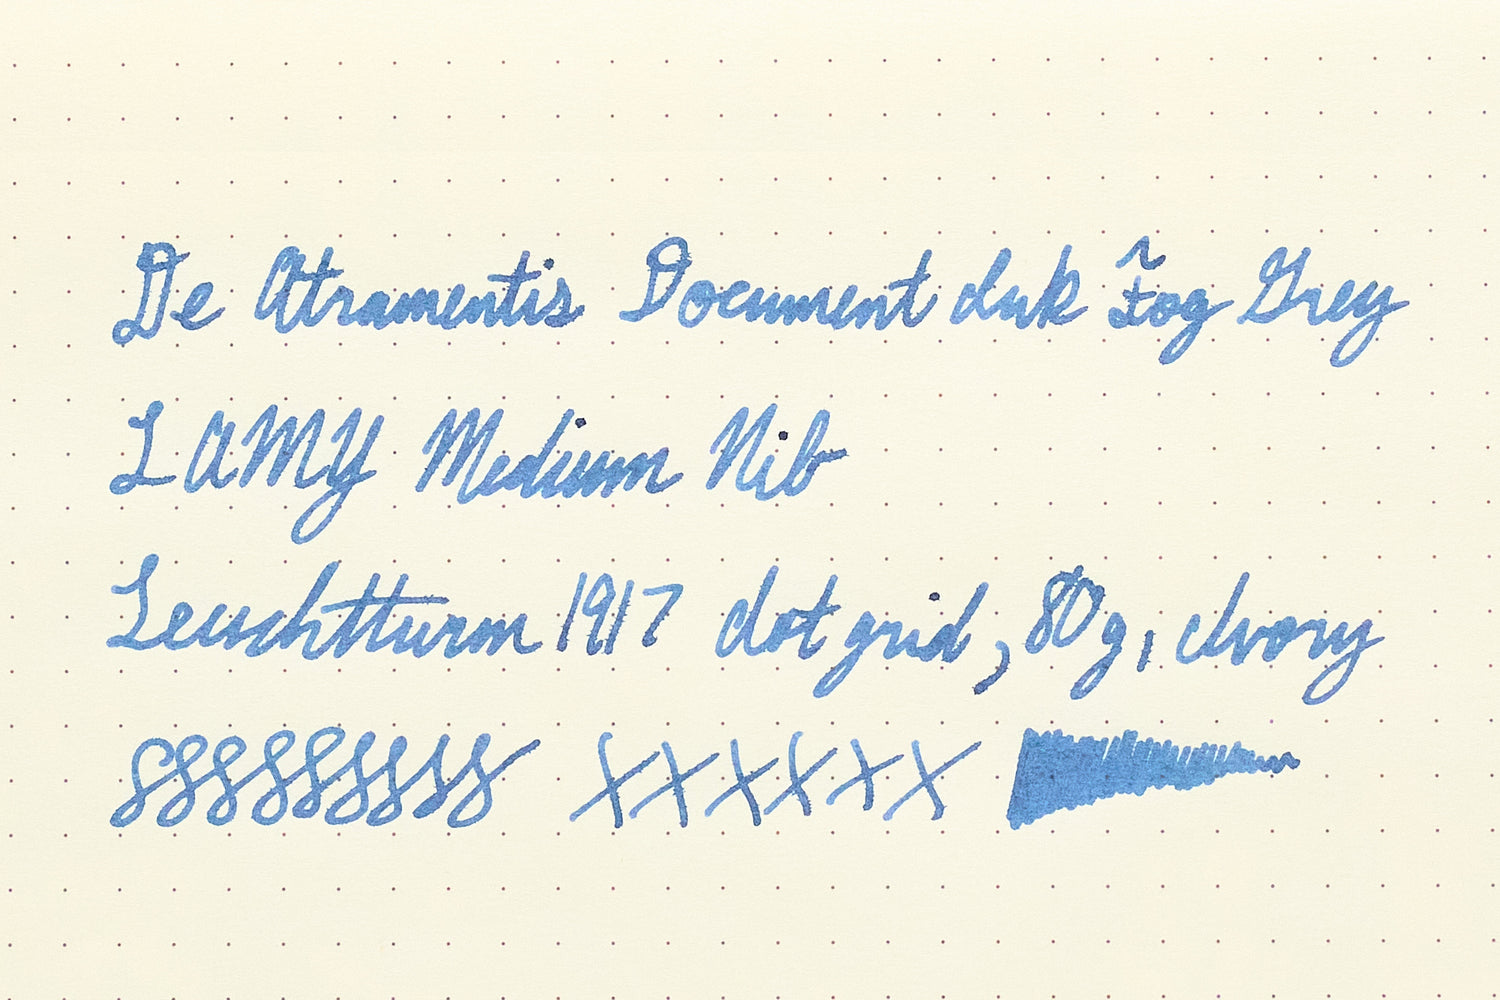 De Atramentis Document Ink Fog Grey
LAMY Medium Nib
Leuchtturm 1917 dot grid, 80g, Ivory
xxxxxx